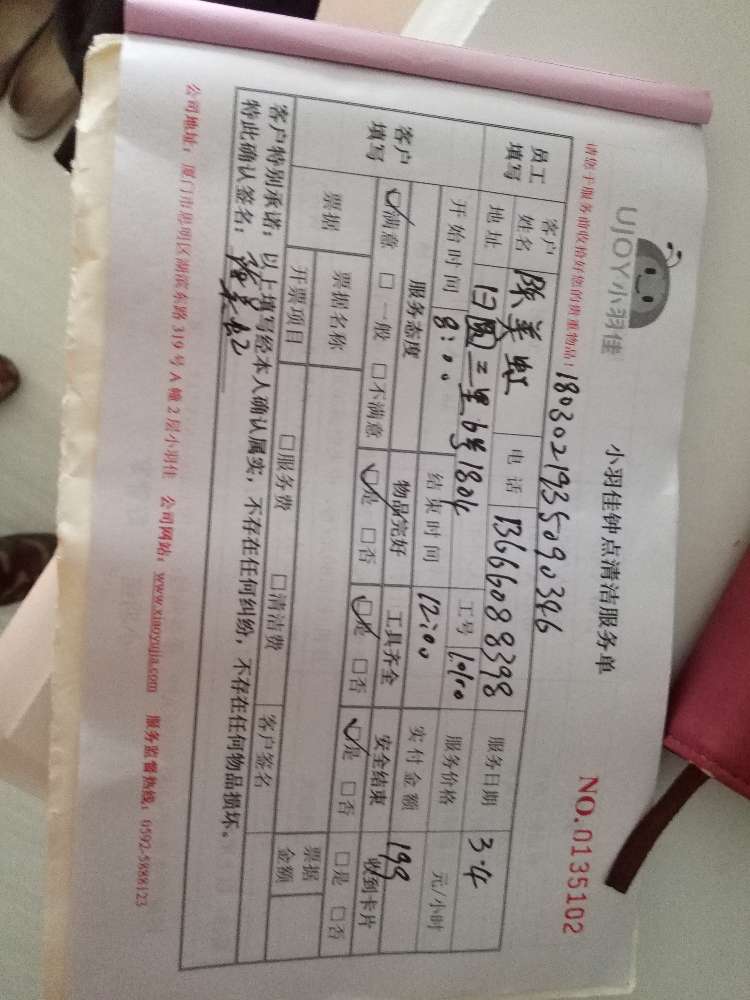 UJOY小羽佳
小羽佳钟点清洁服务单
NO.0135102
请您于服务前收拾好您的贵重物品！
1803021935090346
员工填写 客户姓名 陈美虹 电话 13666088398 服务日期 3.4
地址 旧圆三里6号1804 工号 服务价格 元/小时
开始时间 8:00 结束时间 12:00 实付金额 199
客户填写 服务态度 物品完好 工具齐全 安全结束 收到卡片
☑满意 □一般 □不满意 ☑是 □否 ☑是 □否 ☑是 □否 □是 □否
票据 票据名称 票据金额
开票项目 □服务费 □清洁费 客户签名
客户特别承诺：以上填写经本人确认属实，不存在任何纠纷，不存在任何物品损坏。
特此确认签名：
公司地址：厦门市思明区湖滨东路319号A幢2层小羽佳 公司网站：www.xiaoyujia.com 服务监督热线：0592-5888123